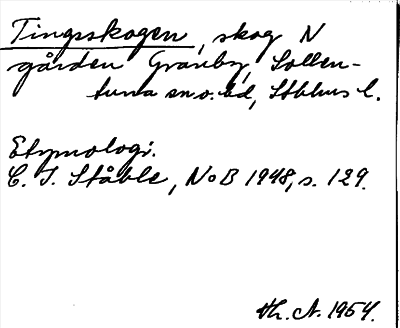 Tingsskogen, skog N
gården Granby, Sollen-
tuna sn o. hd, Sthlms l.
Etymologi.
C. I. Ståhle, NoB 1948, s. 129.
Th. A. 1954.